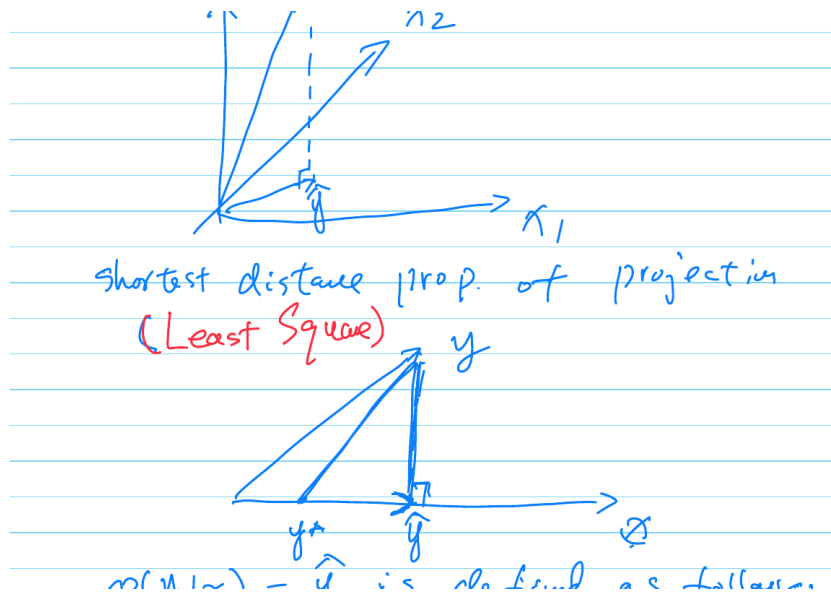 x2
ŷ
x1
shortest distance prop. of projection
(Least Square)
y
y* ŷ x
p(y|x) = ŷ is defined as follows